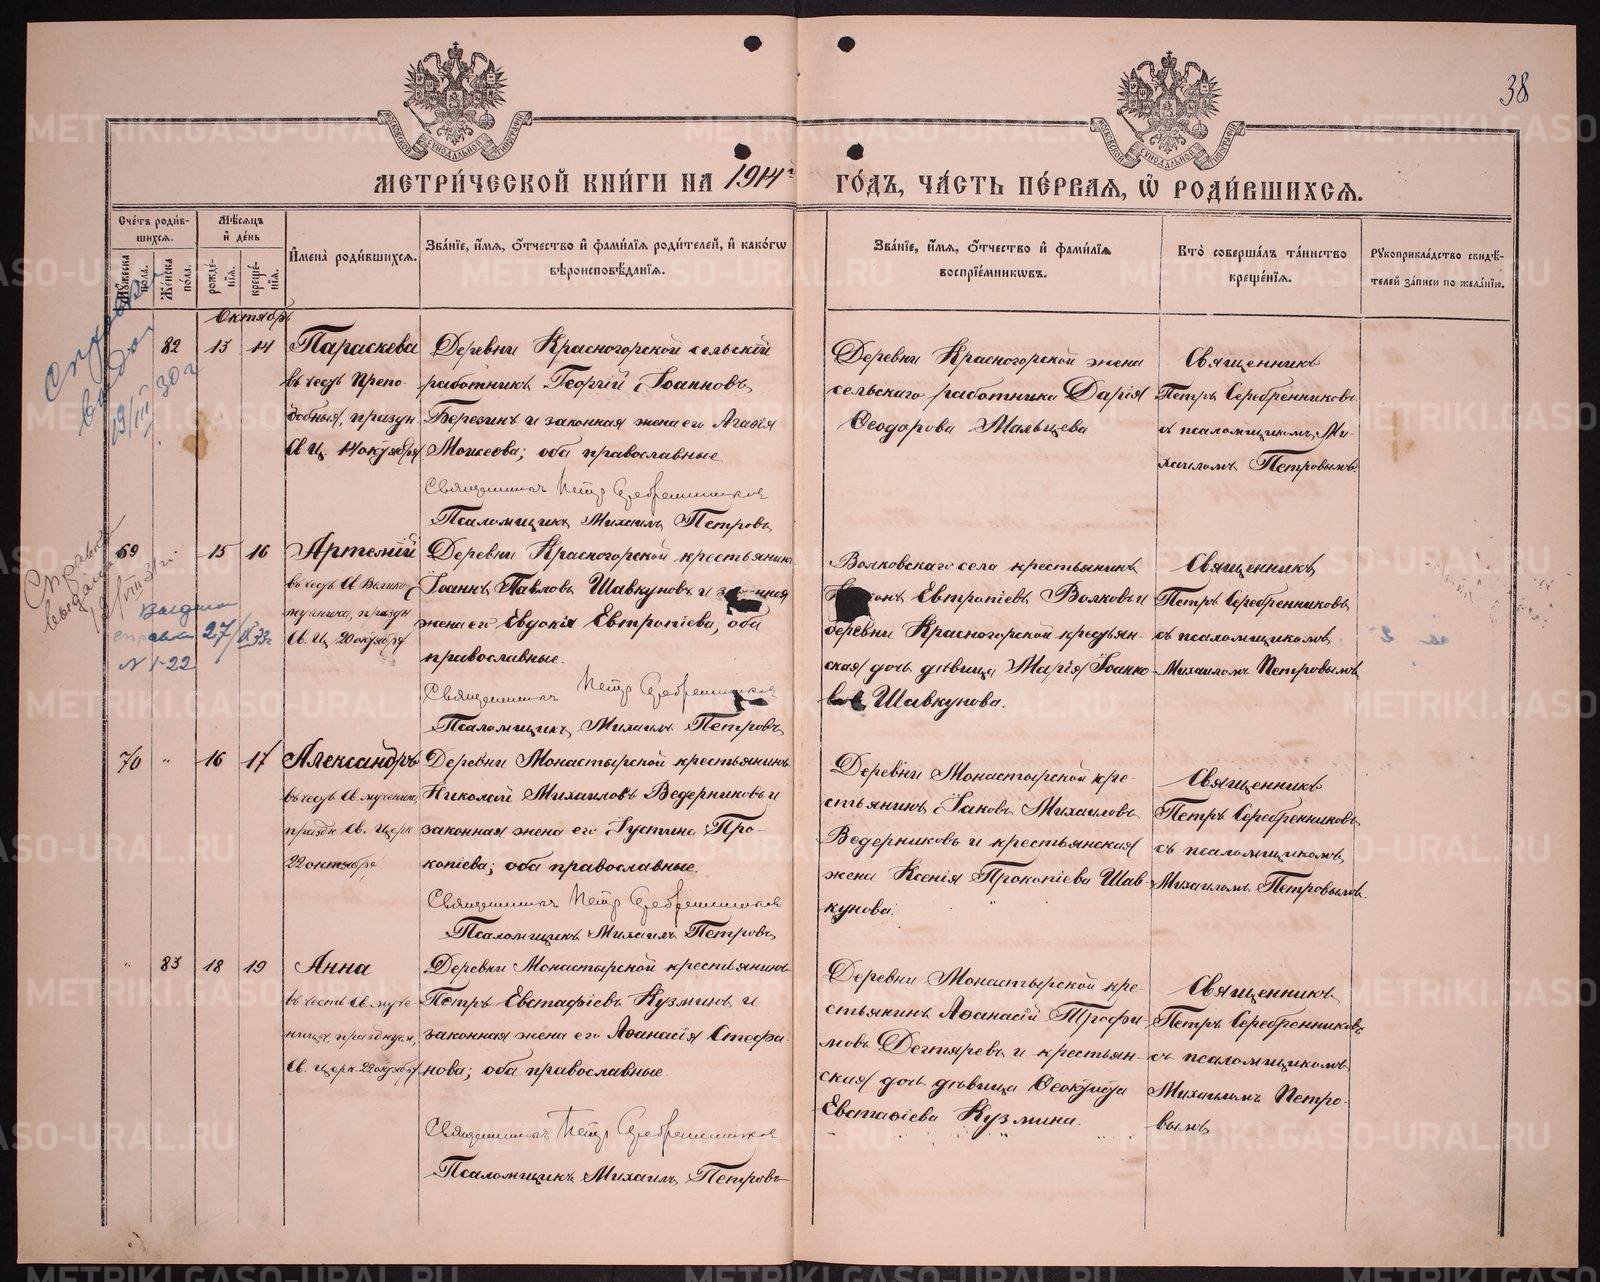 38
МЕТРИ́ЧЕСКОЙ КНИ́ГИ НА 1914 г.
ГО́ДЪ, ЧА́СТЬ ПЕ́РВАЯ, Ѽ РОДИ́ВШИХСЯ.
Сче́тъ роди́в-
шихся.
Му́жеска по́ла.
Же́нска по́ла.
Мѣ́сяцъ
и҆ де́нь
рожде́-
нїя.
креще́-
нїя.
И҆мена̀ роди́вшихся.
Зва́нїе, и҆́мя, о҆́тчество и҆ фами́лїя роди́телей, и҆ како́гѡ
вѣроисповѣ́данїя.
Зва́нїе, и҆́мя, о҆́тчество и҆ фами́лїя
воспрїе́мникѡвъ.
Кто̀ соверша́лъ та́инство
креще́нїя.
Рꙋкоприкла́дство свидѣ́-
телей за́писи по жела́нїю.
Октябрь
82 13 14 Параскева
въ честь Препо-
добныя, праздн
Св Ц. 14 октября
Деревни Красногорской сельскій
работникъ Георгій Іоанновъ
Березинъ и законная жена его Агафія
Моисеова; оба православные
Священникъ Петръ Серебренниковъ
Псаломщикъ Михаилъ Петровъ
Деревни Красногорской жена
сельскаго работника Дарія
Ѳеодорова Мальцева
Священникъ
Петръ Серебренниковъ
съ псаломщикомъ Ми-
хаиломъ Петровымъ
69 " 15 16 Артемій
въ честь Св Велико-
мученика, праздн
Св. Ц. 20 октября
Деревни Красногорской крестьянинъ
Іоаннъ Павловъ Шавкуновъ и законная
жена его Евдокія Евтропіева; оба
православные.
Священникъ Петръ Серебренниковъ
Псаломщикъ Михаилъ Петровъ
Волковскаго села крестьянинъ
Евтропіевъ Волковъ и
деревни Красногорской крестьян-
ская дочь дѣвица Марія Іоанно-
ва Шавкунова.
Священникъ
Петръ Серебренниковъ
съ псаломщикомъ
Михаиломъ Петровымъ
70 " 16 17 Александръ
въ честь Св. мученика,
праздн Св. Церк
22 октября
Деревни Монастырской крестьянинъ
Николай Михаиловъ Ведерниковъ и
законная жена его Іустина Про-
копіева; оба православные.
Священникъ Петръ Серебренниковъ
Псаломщикъ Михаилъ Петровъ
Деревни Монастырской кре-
стьянинъ Іаковъ Михаиловъ
Ведерниковъ и крестьянская
жена Ксенія Прокопіева Шав-
кунова.
Священникъ
Петръ Серебренниковъ
съ псаломщикомъ
Михаиломъ Петровымъ
" 83 18 19 Анна
въ честь Св. муче-
ницы, празднуем.
Св. Церк. 22 октября
Деревни Монастырской крестьянинъ
Петръ Евстафіевъ Кузминъ и
законная жена его Аѳанасія Стефа-
нова; оба православные
Священникъ Петръ Серебренниковъ
Псаломщикъ Михаилъ Петровъ
Деревни Монастырской кре-
стьянинъ Аѳанасій Трофи-
мовъ Дегтяревъ и крестьян-
ская дочь дѣвица Ѳеоктиста
Евстафіева Кузмина.
Священникъ
Петръ Серебренниковъ
съ псаломщикомъ
Михаиломъ Петро-
вымъ
Справка
выдана
Выдана
справка 27/X 33г
N 1-22
METRIKI.GASO-URAL.RU